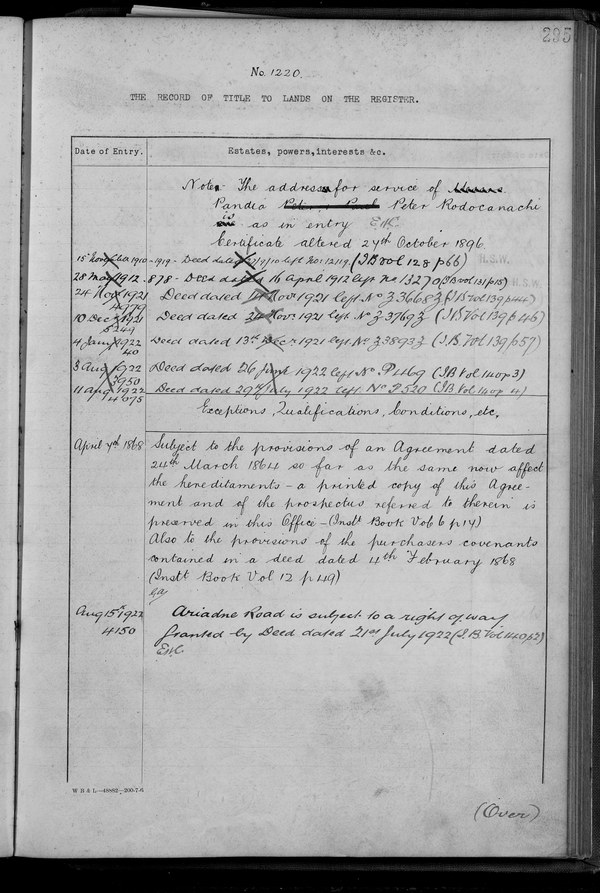 295
No. 1220.
THE RECORD OF TITLE TO LANDS ON THE REGISTER.
Date of Entry. Estates, powers, interests &c.
Note. The address for service of
Pandia Peter Rodocanachi
is as in entry EHC.
Certificate altered 27th October 1896.
15 Novr 1910 - 1919 - Deed dated left No 12119. (IB vol 128 p66)
28 May 1912. 878 - Deed dated 16 April 1912 left No. 13270 (IB vol 131 p15)
24 Nov 1921 Deed dated Novr 1921 left No Z3668Z (IB Vol 139 p44)
4979
10 Dec 1921 Deed dated Novr 1921 left No Z3769Z (IB Vol 139 p46)
5249
4 Jany 1922 Deed dated 13th Decr 1921 left No Z3893Z (I.B. Vol 139 p57)
40
3 Aug 1922 Deed dated 26 June 1922 left No. P469 (IB Vol 140 p3)
3950
11 Aug 1922 Deed dated 29th July 1922 left No P520 (IB Vol 140 p 4)
4075
Exceptions, Qualifications, Conditions, etc,
April 7th 1868 Subject to the provisions of an Agreement dated
24th March 1864 so far as the same now affect
the hereditaments - a printed copy of this Agree-
ment and of the prospectus referred to therein is
preserved in this Office - (Instt Book Vol 6 p 14)
Also to the provisions of the purchasers covenants
contained in a deed dated 4th February 1868
(Instt Book Vol 12 p 49)
Aug 15th 1922 Ariadne Road is subject to a right of way
4150 granted by Deed dated 21st July 1922 (I.B. Vol 140 p2)
EHC
W B & L—48882—200-7-6
(Over)